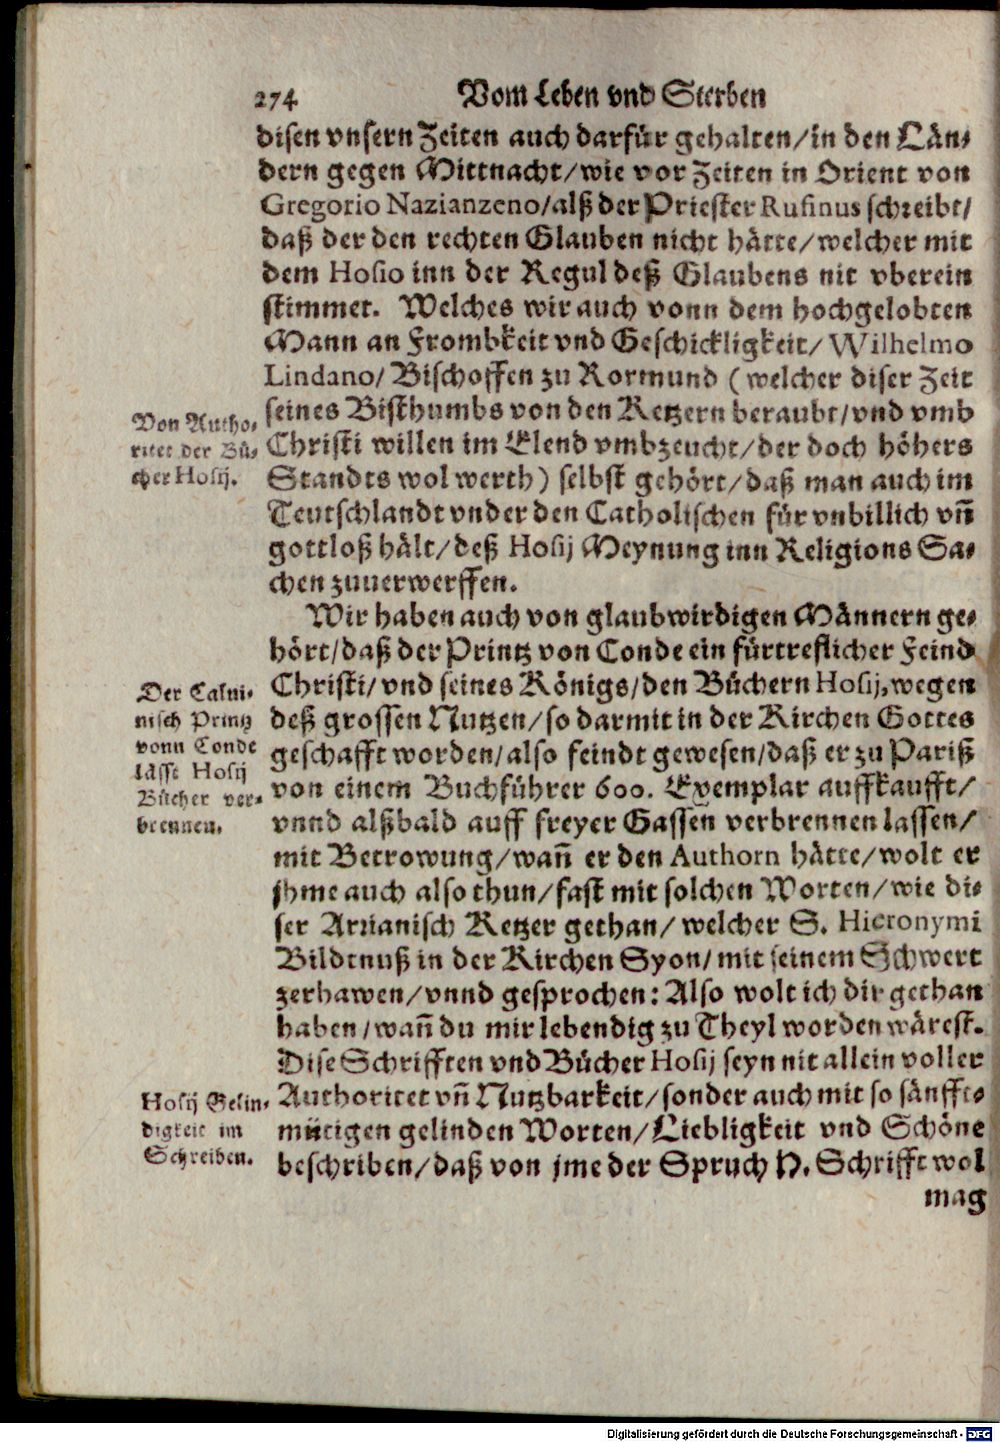 274 Vom Leben vnd Sterben
disen vnsern Zeiten auch darfür gehalten/in den Län-
dern gegen Mittnacht/wie vor Zeiten in Orient von
Gregorio Nazianzeno/alß der Priester Rufinus schreibt/
daß der den rechten Glauben nicht hätte/welcher mit
dem Hosio inn der Regul deß Glaubens nit vberein
stimmet. Welches wir auch vonn dem hochgelobten
Mann an Frombkeit vnd Geschickligkeit/ Wilhelmo
Lindano/ Bischoffen zu Rormund (welcher diser Zeit
seines Bisthumbs von den Ketzern beraubt/vnd vmb
Christi willen im Elend vmbzeucht/der doch höhers
Standts wol werth) selbst gehört/daß man auch im
Teutschlandt vnder den Catholischen für vnbillich vñ
gottloß hält/deß Hosij Meynung inn Religions Sa-
chen zuuerwerffen.
Von Autho-
ritet der Bü-
cher Hosij.
Wir haben auch von glaubwirdigen Männern ge-
hört/daß der Printz von Conde ein fürtreflicher Feind
Christi/vnd seines Königs/den Büchern Hosij,wegen
deß grossen Nutzen/so darmit in der Kirchen Gottes
geschafft worden/also feindt gewesen/daß er zu Pariß
von einem Buchführer 600. Exemplar auffkaufft/
vnnd alßbald auff freyer Gassen verbrennen lassen/
mit Betrowung/wañ er den Authorn hätte/wolt er
jhme auch also thun/fast mit solchen Worten/wie di-
ser Arrianisch Ketzer gethan/welcher S. Hieronymi
Bildtnuß in der Kirchen Syon/mit seinem Schwert
zerhawen/vnnd gesprochen: Also wolt ich dir gethan
haben/wañ du mir lebendig zu Theyl worden wärest.
Dise Schrifften vnd Bücher Hosij seyn nit allein voller
Authoritet vñ Nutzbarkeit/sonder auch mit so sänfft-
mütigen gelinden Worten/Liebligkeit vnd Schöne
beschriben/daß von jme der Spruch H. Schrifft wol
mag
Der Calui-
nisch Printz
vonn Conde
lässt Hosij
Bücher ver-
brennen.
Hosij Gelin-
digkeit im
Schreiben.
Digitalisierung gefördert durch die Deutsche Forschungsgemeinschaft - DFG